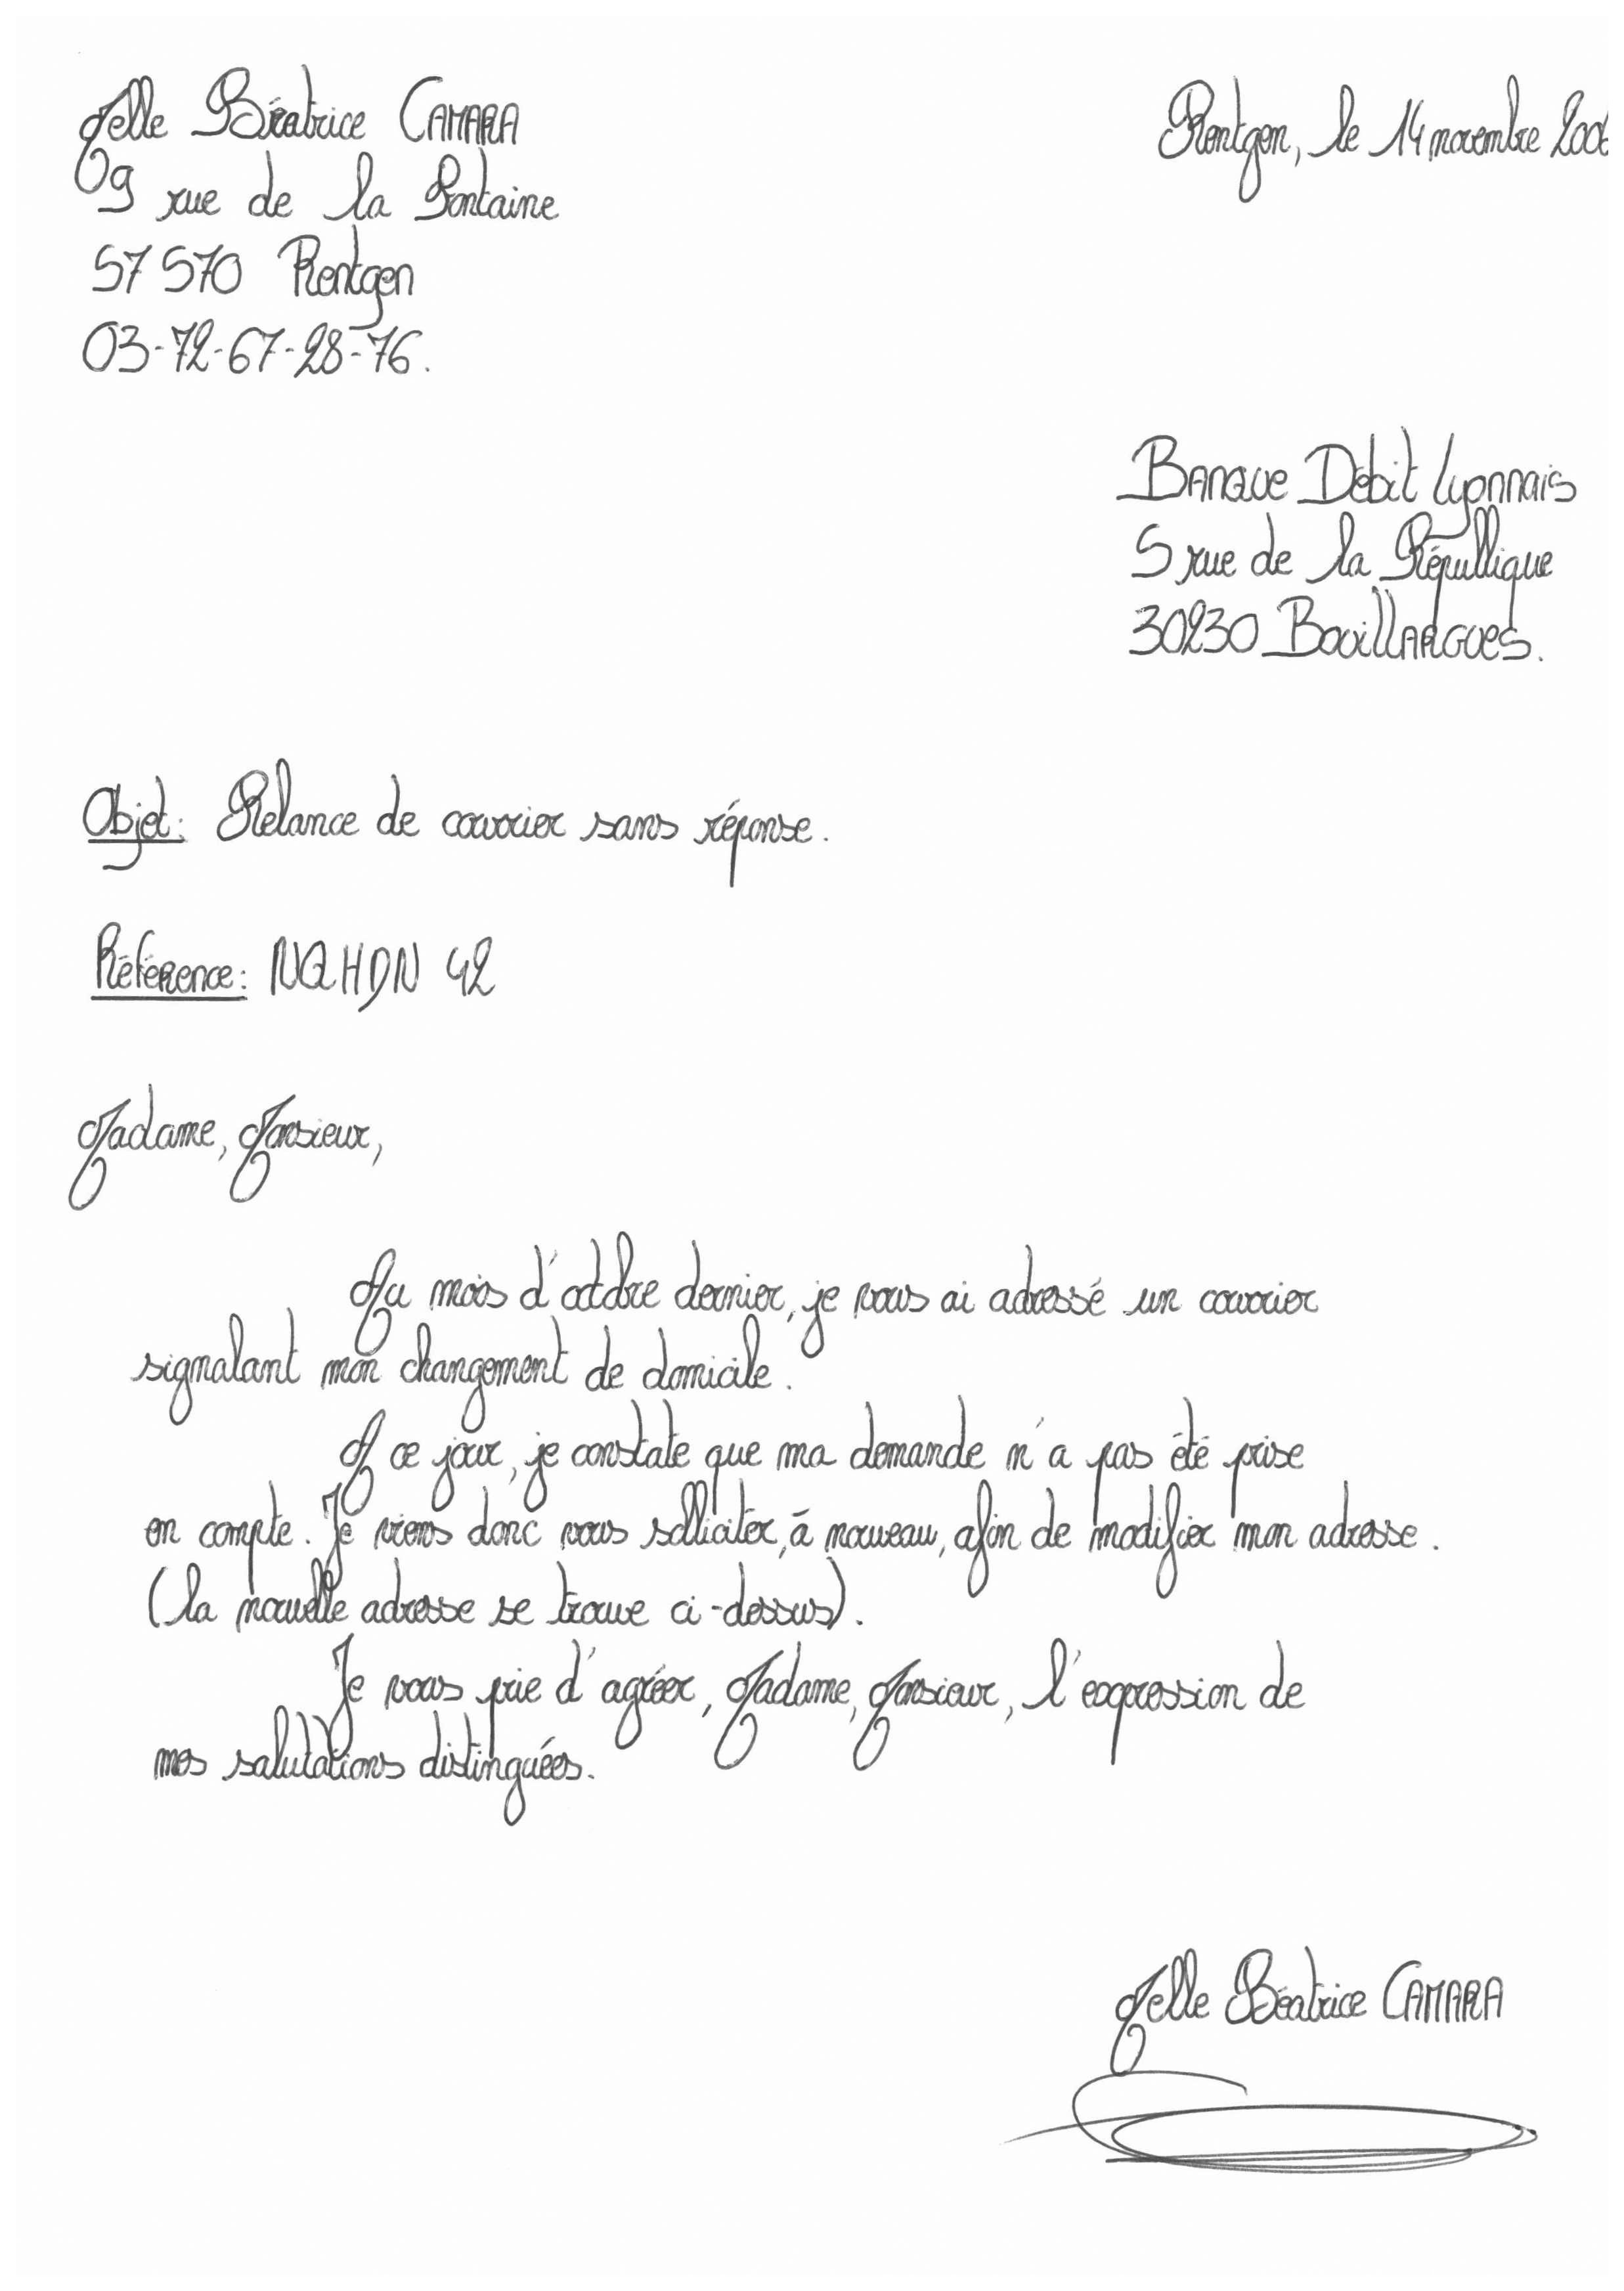 Melle Béatrice CAMARA
Rentgen, le 14 novembre 2006
09 rue de la Fontaine
57 570 Rentgen
03-72-67-28-76.
Banque Débit Lyonnais
5 rue de la République
30230 Bouillargues.
Objet: Relance de courrier sans réponse.
Référence: NQHDN 42
Madame, Monsieur,
Au mois d'octobre dernier, je vous ai adressé un courrier
signalant mon changement de domicile.
A ce jour, je constate que ma demande n'a pas été prise
en compte. Je viens donc vous solliciter, à nouveau, afin de modifier mon adresse.
(la nouvelle adresse se trouve ci-dessus).
Je vous prie d'agréer, Madame, Monsieur, l'expression de
mes salutations distinguées.
Melle Béatrice CAMARA